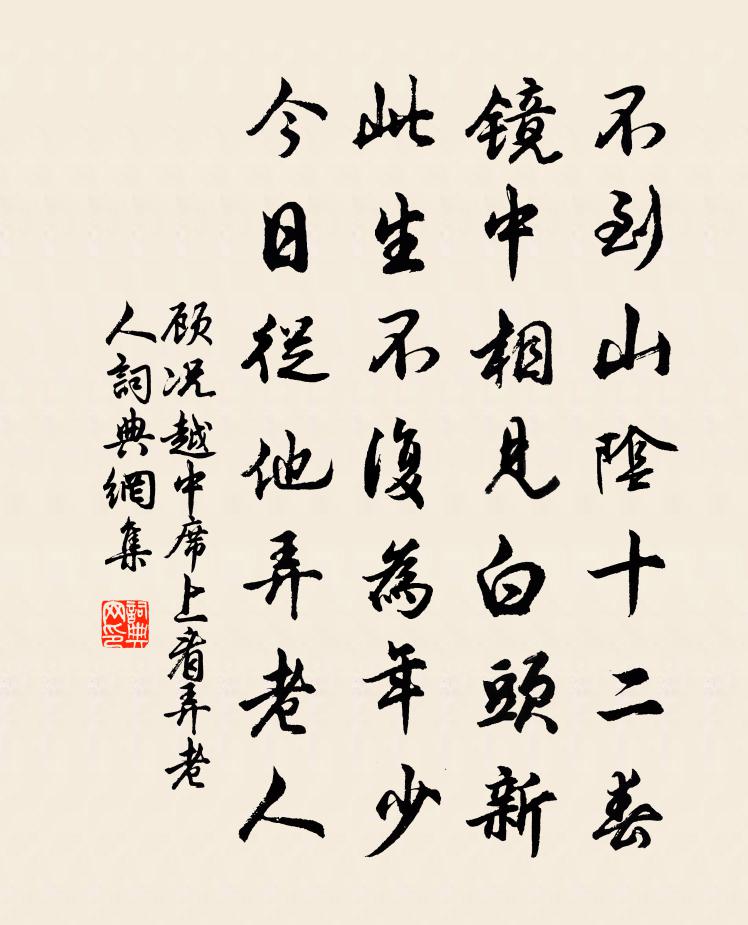 不到山陰十二春
镜中相見白頭新
此生不復為年少
今日從他弄老人
顾况越中席上看弄老
人詞典網集
詞典
网印